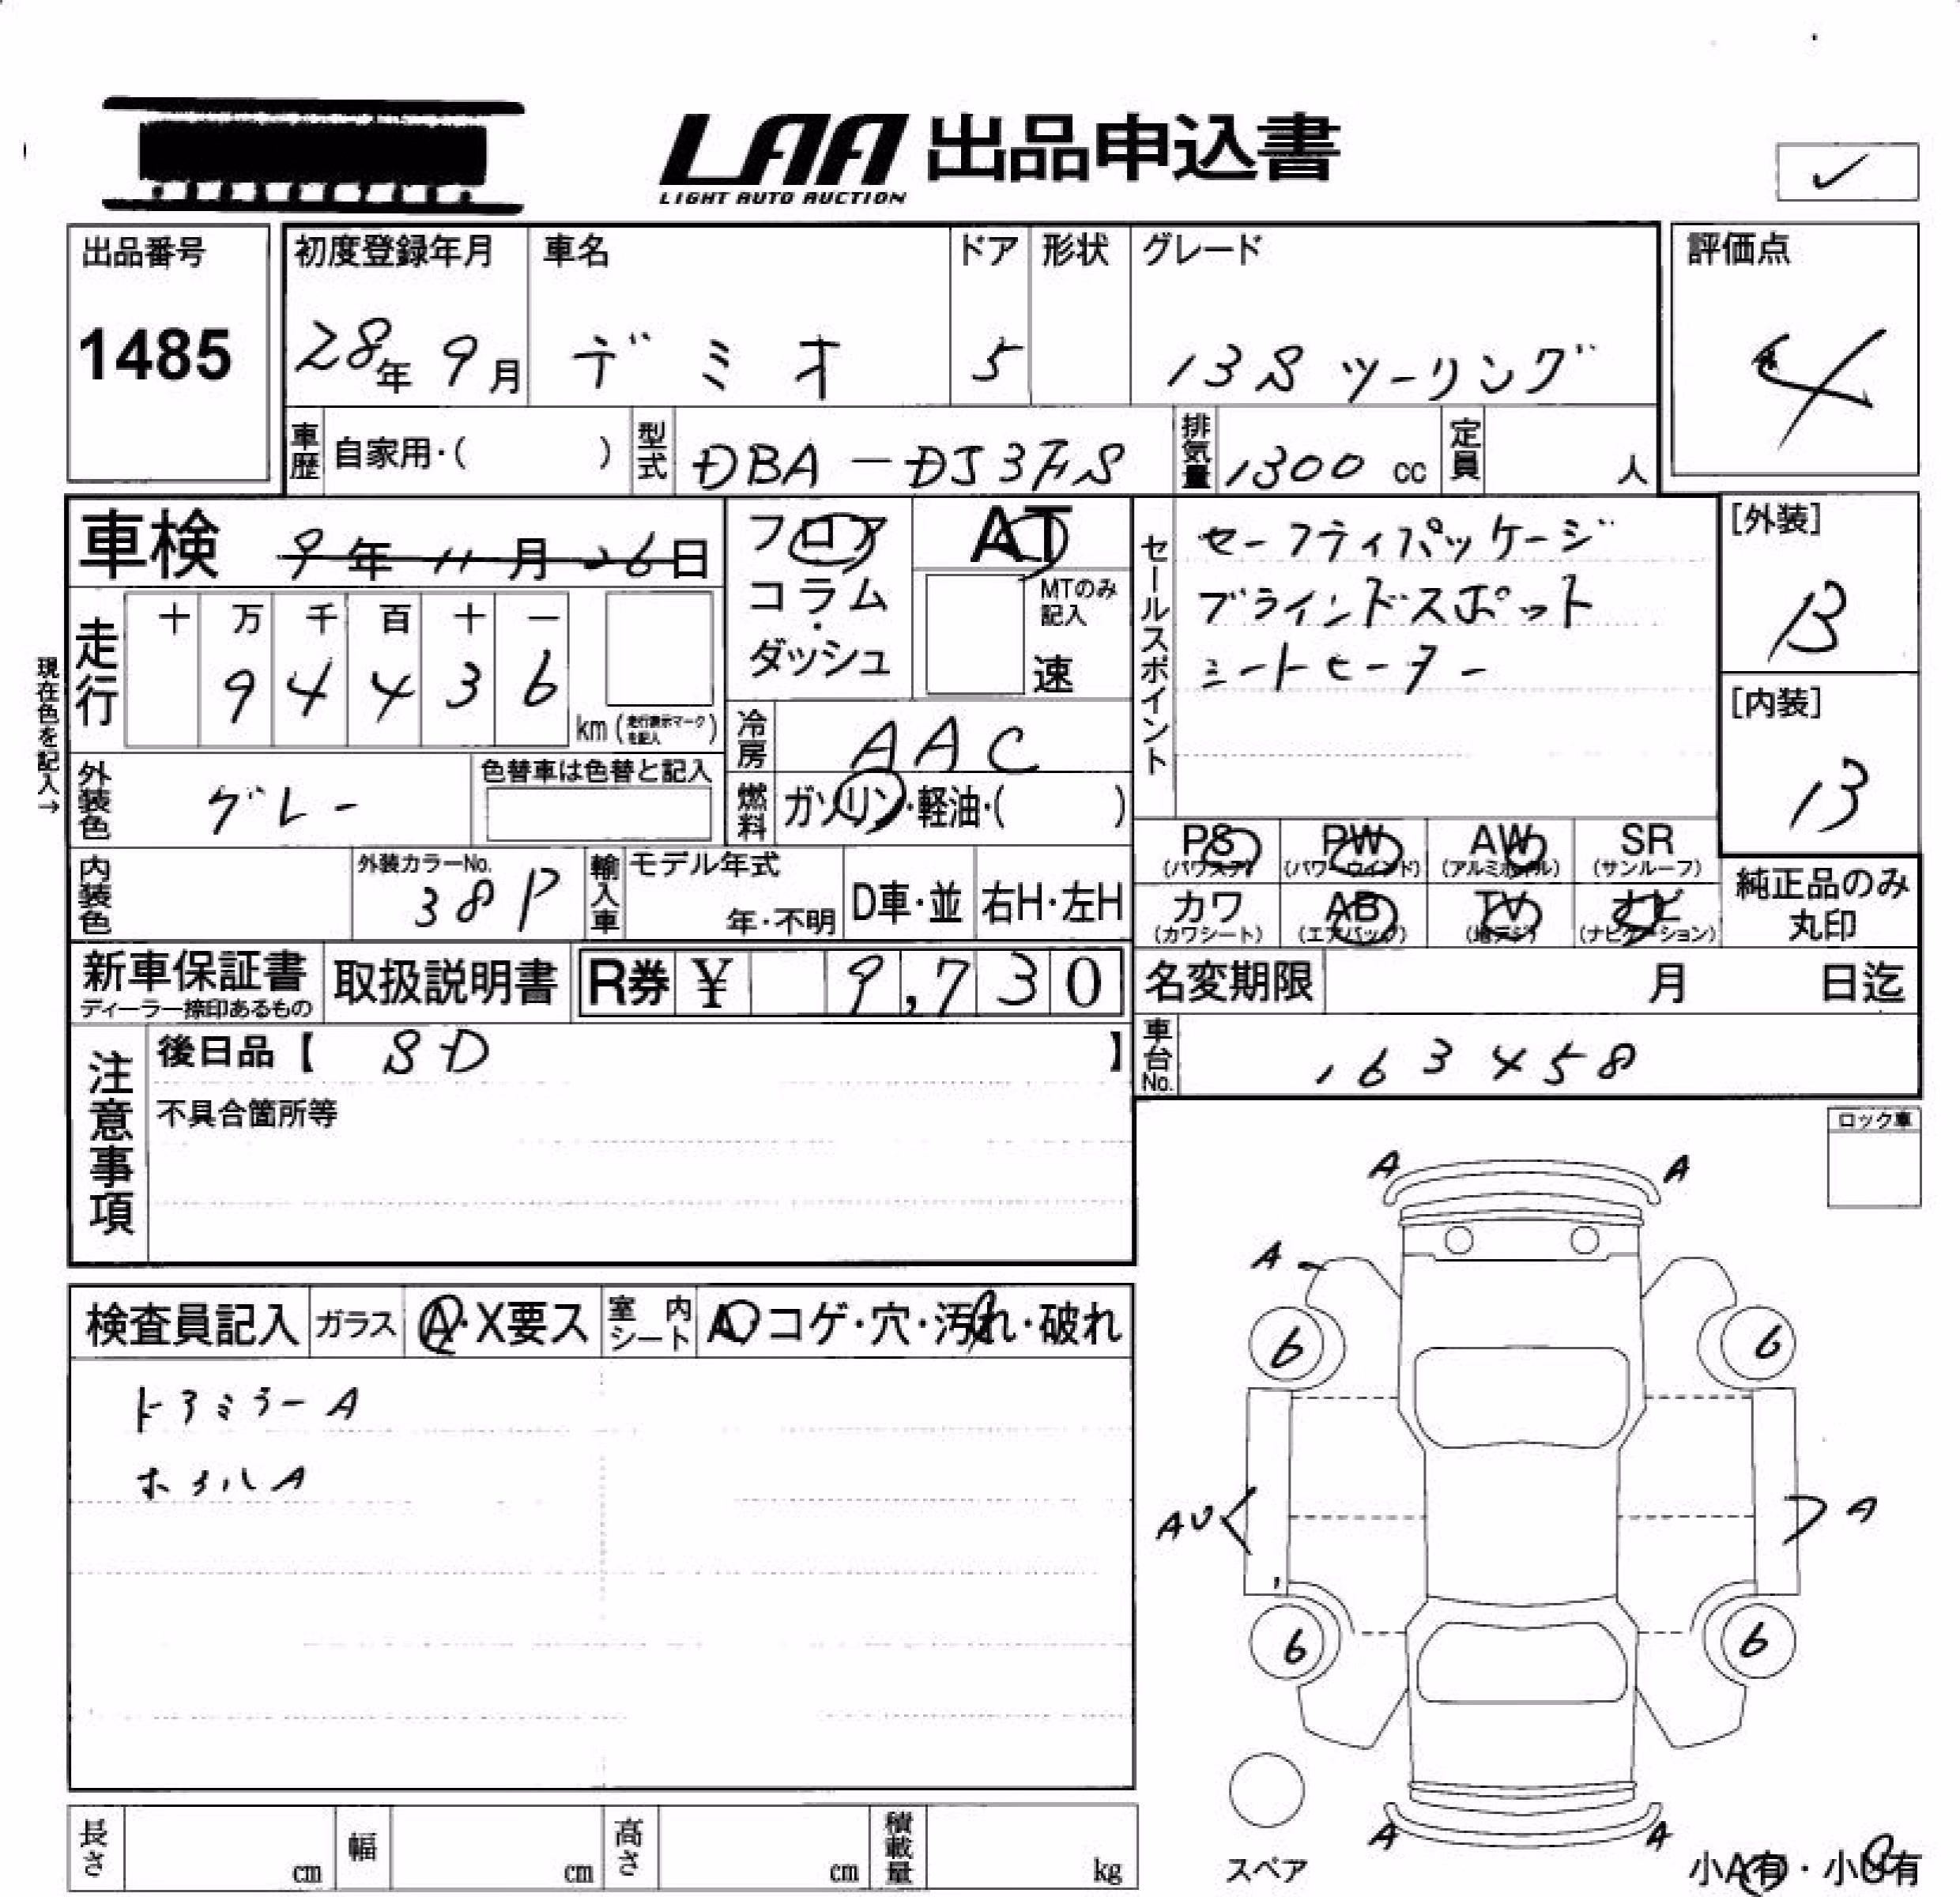 LAA 出品申込書
LIGHT AUTO AUCTION
✓
出品番号
1485
初度登録年月
28年 9月
車名
デミオ
ドア
5
形状
グレード
13S ツーリング
評価点
4
車歴 自家用・( )
型式 DBA-DJ3FS
排気量 1300 cc
定員 人
車検 9年 11月 26日
フロア
コラム・
ダッシュ
AT
MTのみ記入
速
セールスポイント
セーフティパッケージ
ブラインドスポット
シートヒーター
[外装]
B
[内装]
B
現在色を記入→
走行
十 万 千 百 十 一
9 4 4 3 6
km (走行表示マークを記入)
冷房 AAC
燃料 ガソリン・軽油・( )
外装色 グレー
色替車は色替と記入
内装色
外装カラーNo.
38P
輸入車 モデル年式
年・不明
D車・並
右H・左H
PS (パワステ)
PW (パワーウインド)
AW (アルミホイル)
SR (サンルーフ)
カワ (カワシート)
AB (エアバック)
TV (地デジ)
ナビ (ナビゲーション)
純正品のみ
丸印
新車保証書
ディーラー捺印あるもの
取扱説明書
R券 ¥ 9,730
名変期限 月 日迄
車台No. 163458
注意事項
後日品【 SD 】
不具合箇所等
ロック車
検査員記入
ガラス A・X要ス
室内シート A・コゲ・穴・汚れ・破れ
ドアミラーA
ホイルA
A A
A
6 6
AU A
6 6
A A
スペア
小A有・小U有
長さ cm
幅 cm
高さ cm
積載量 kg